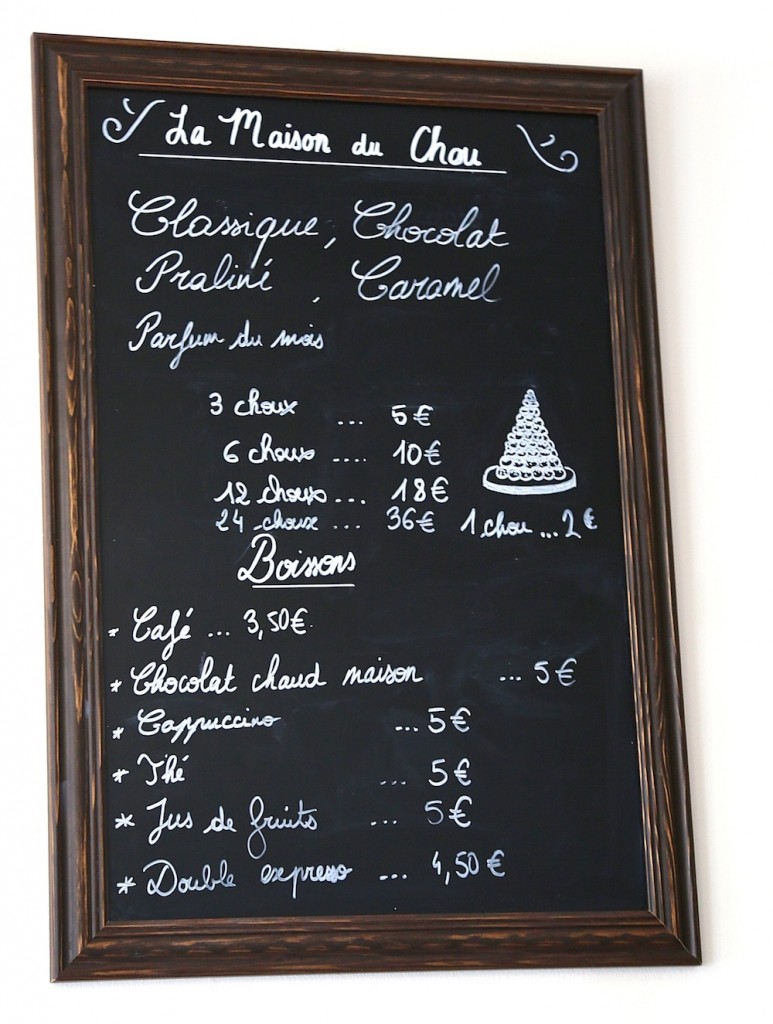 La Maison du Chou
Classique, Chocolat
Praliné , Caramel
Parfum du mois
3 choux ... 5€
6 choux .... 10€
12 choux ... 18€
24 choux ... 36€
1 chou ... 2€
Boissons
* Café ... 3,50€
* Chocolat chaud maison ... 5€
* Cappuccino ... 5€
* Thé ... 5€
* Jus de fruits ... 5€
* Double expresso ... 4,50€